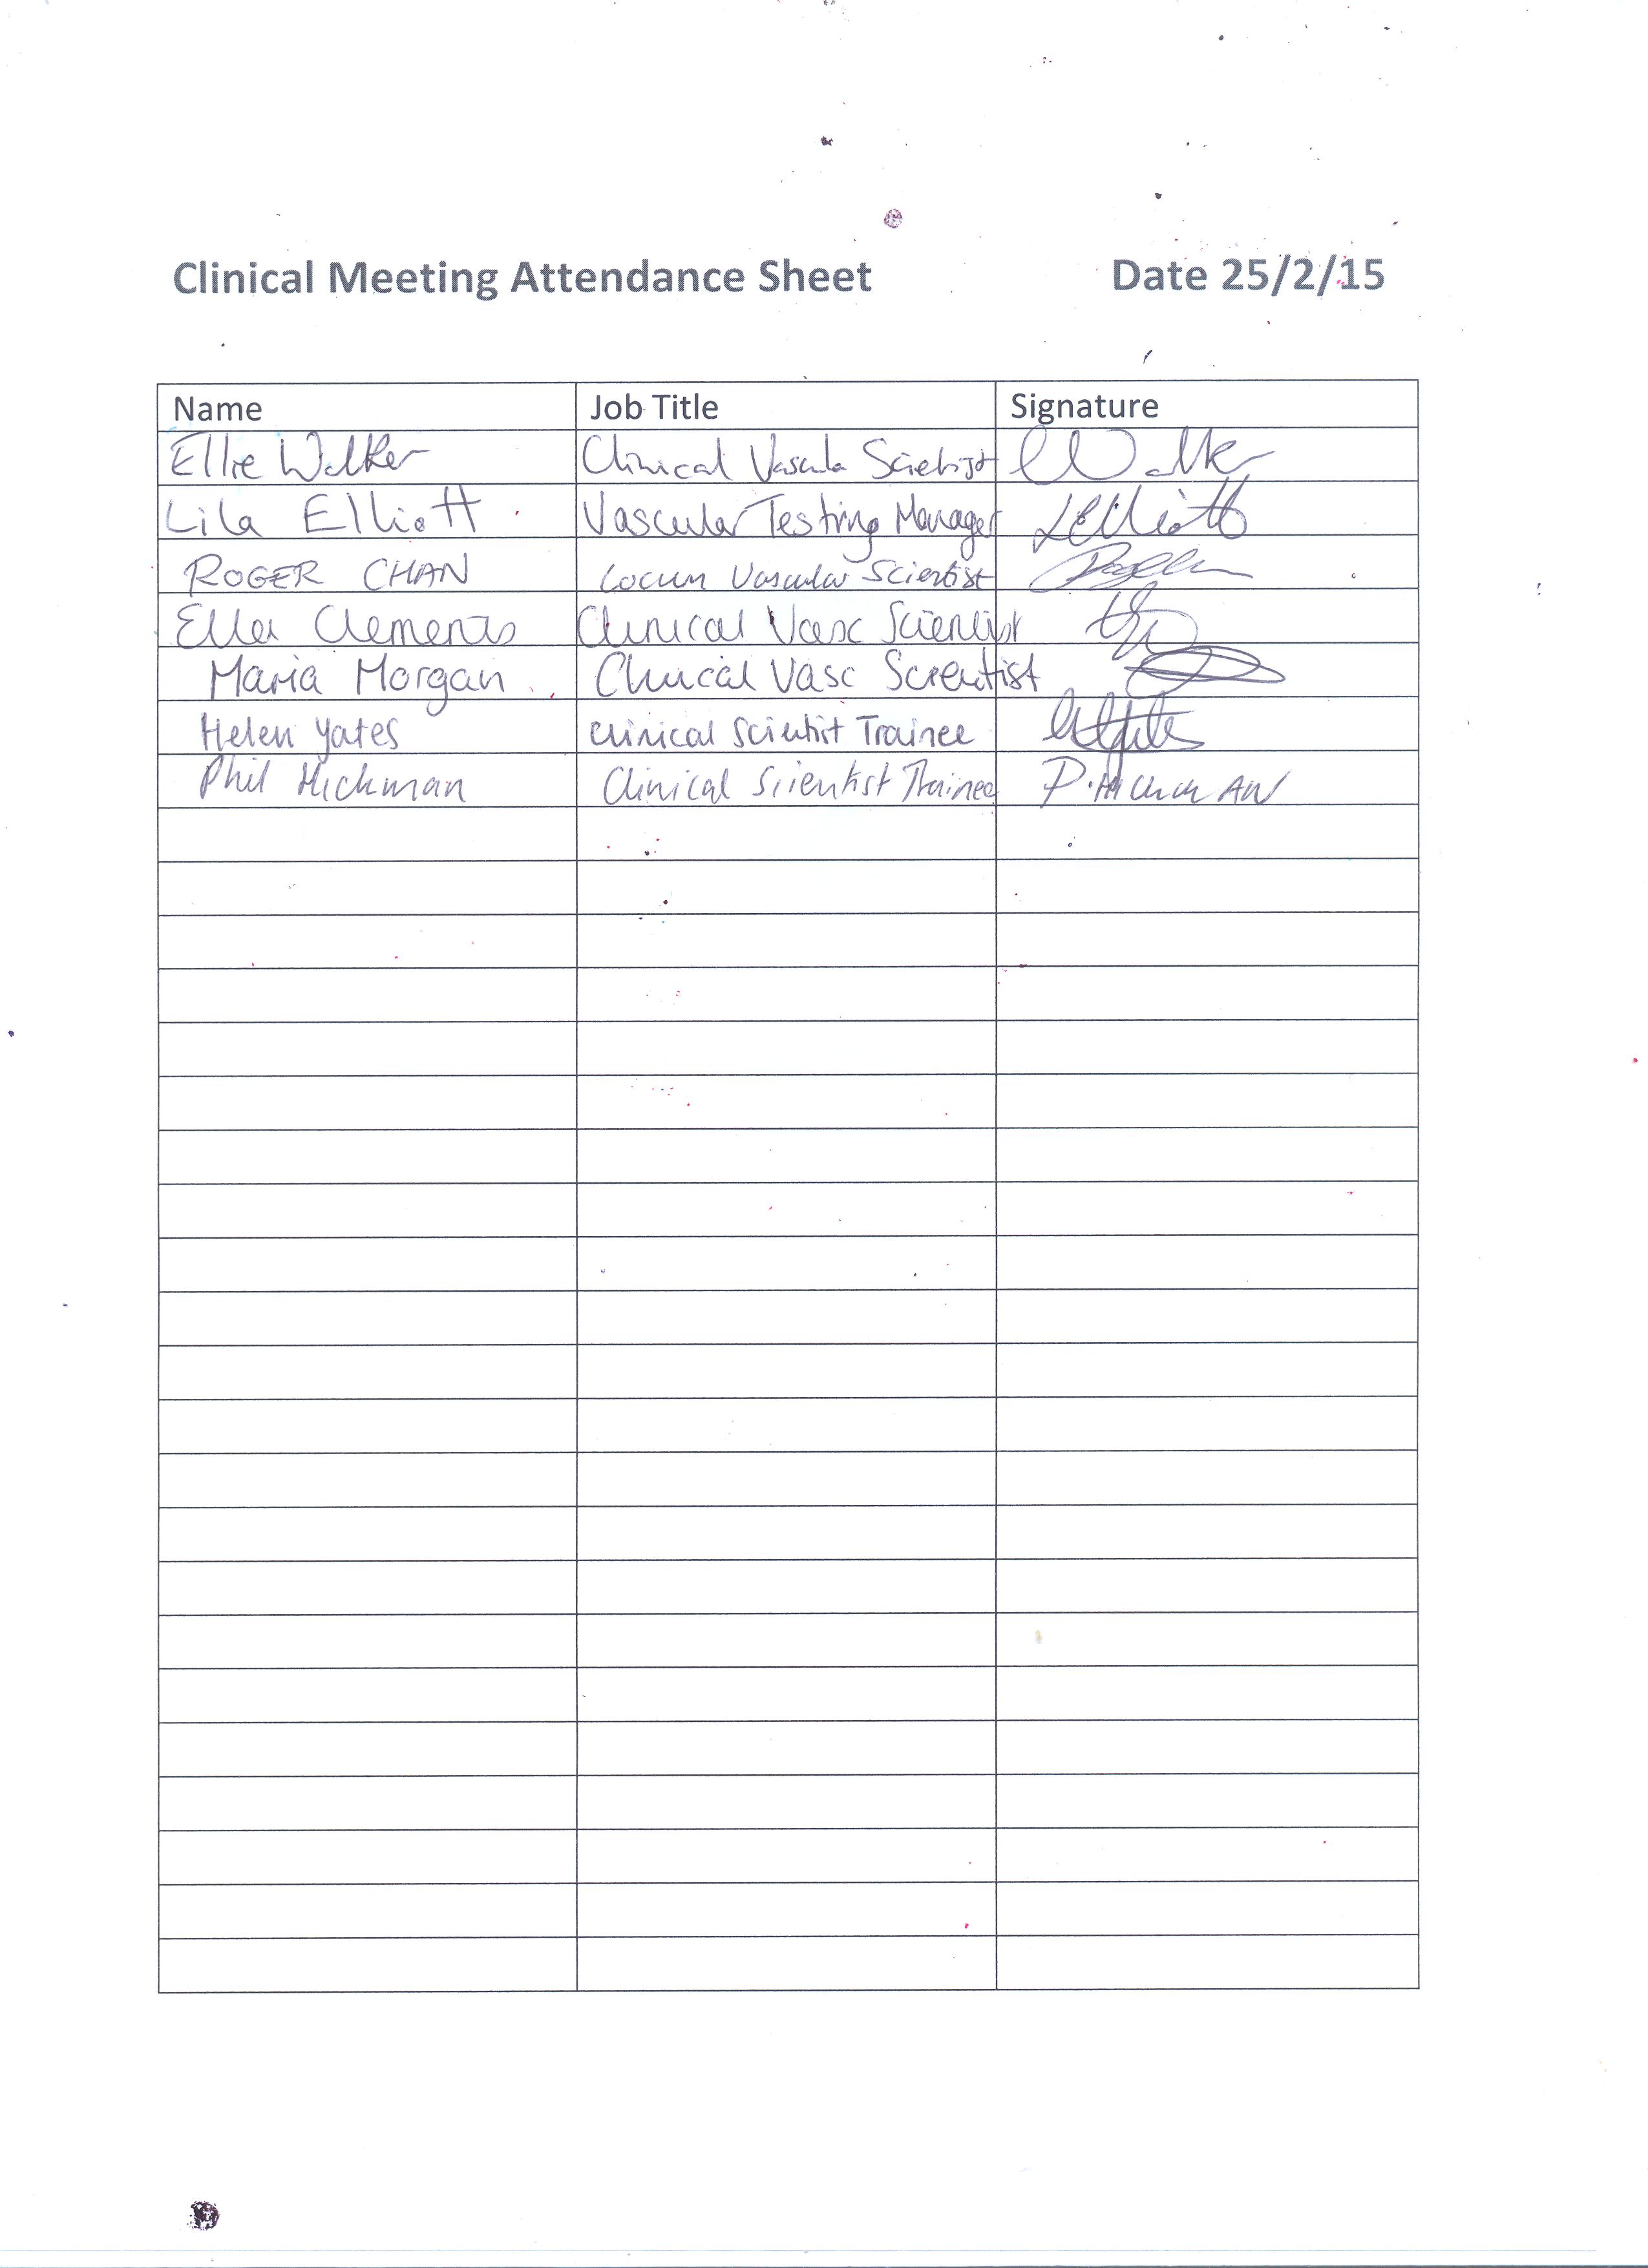 Clinical Meeting Attendance Sheet Date 25/2/15
Name Job Title Signature
Ellie Walker Clinical Vascula Scietist EWalker
Lila Elliott Vascular Testing Manager LElliott
ROGER CHAN Locum Vascular Scientist
Ella Clements Clinical Vasc Scientist
Maria Morgan Clinical Vasc Scientist
Helen Yates Clinical Scientist Trainee
Phil Hickman Clinical Scientist Trainee P. HICKMAN